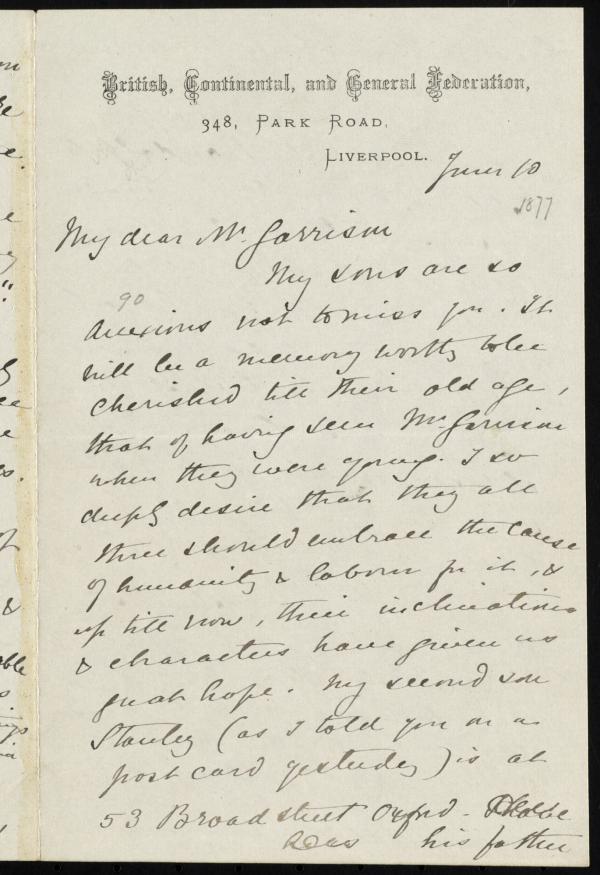 British, Continental, and General Federation,
348, PARK ROAD,
LIVERPOOL.
June 10
1877
My dear Mr. Garrison
My sons are so
90
anxious not to miss you. It
will be a memory worthy to be
cherished till their old age,
that of having seen Mr. Garrison
when they were young. I so
deeply desire that they all
three should embrace the cause
of humanity & labour for it, &
up till now, their inclinations
& characters have given us
great hope. My second son
Stanley (as I told you on a
post card yesterday) is at
53 Broad street Oxford.
his father